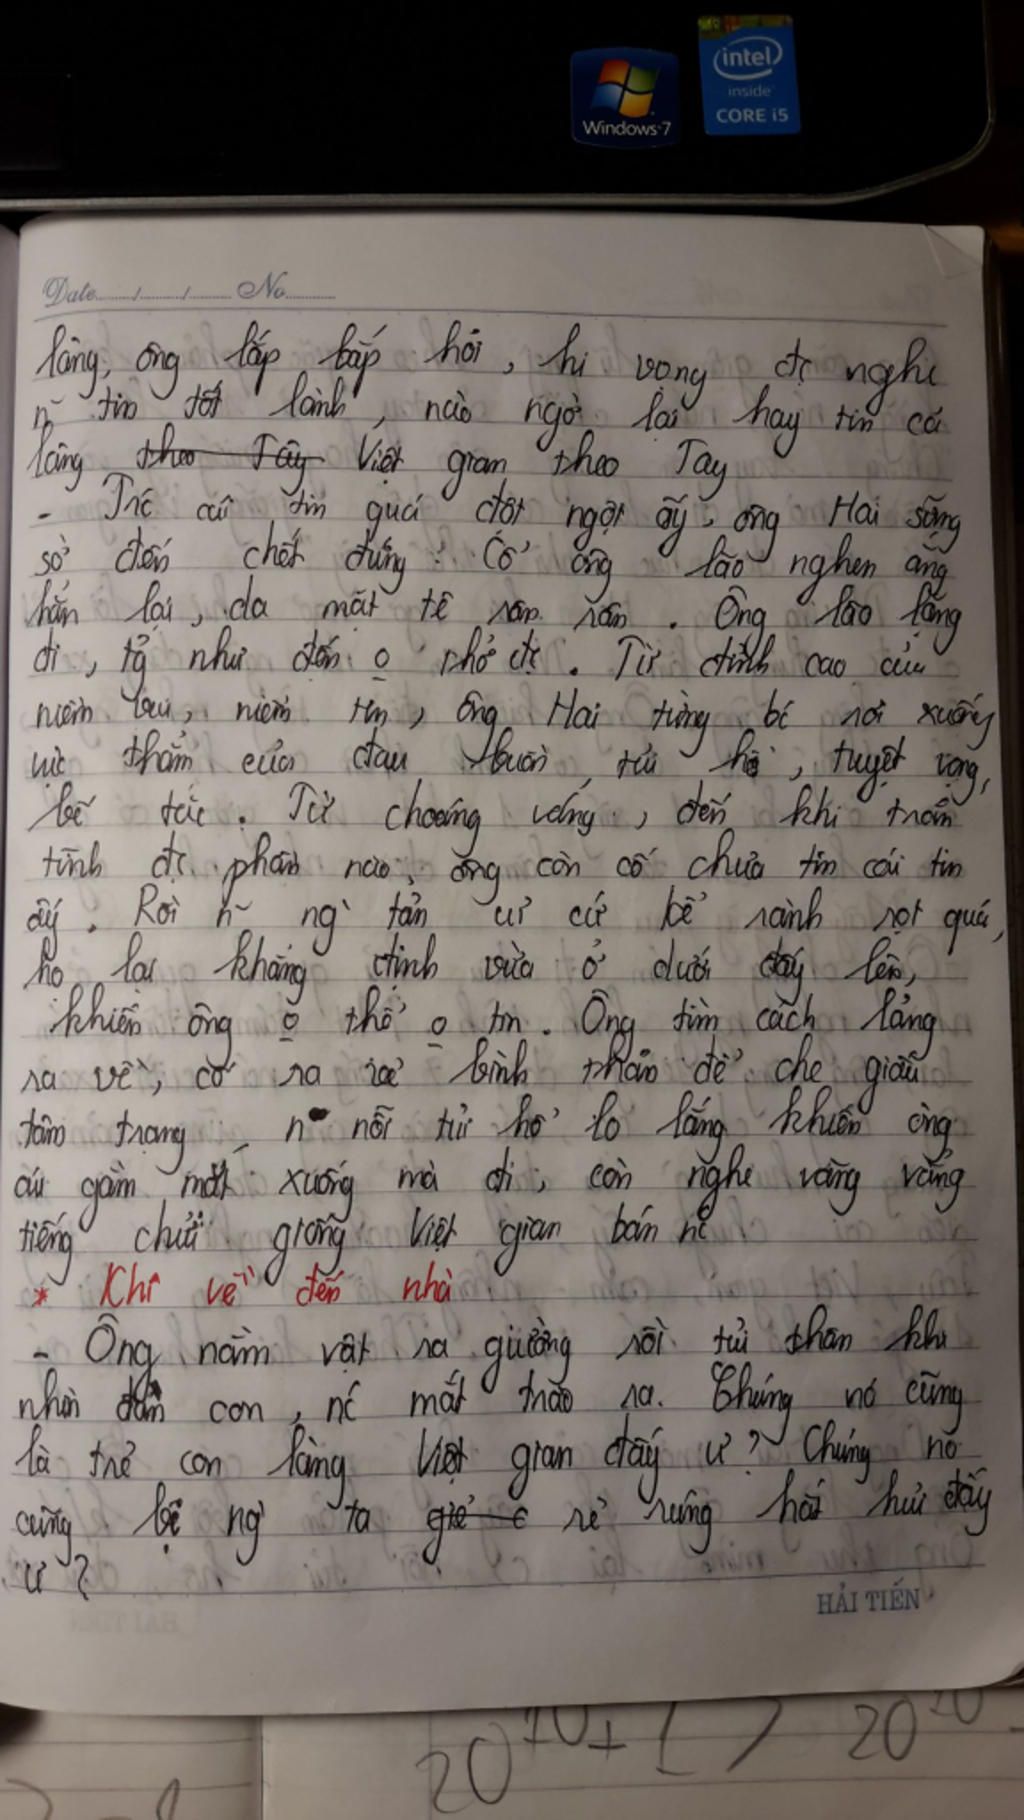 intel
inside
CORE i5
Windows 7
Date No
làng, ông lắp bắp hỏi, hi vọng đc nghe
n~ tin tốt lành, nào ngờ lại hay tin cả
làng theo Tây Việt gian theo Tay
- Trc cái tin quá đột ngột ấy, ông Hai sững
sờ đến chết đứng. Cổ ông lão nghẹn ắng
hẳn lại, da mặt tê rân rân. Ông lão lặng
đi, tg như đến o thở đc. Từ đỉnh cao của
niềm vui, niềm tin, ông Hai từng bc rơi xuống
vực thẳm của đau buồn, tủi hổ, tuyệt vọng,
bế tắc. Từ choáng váng, đến khi trấn
tĩnh đc phần nào, ông còn cố chưa tin cái tin
ấy. Rồi n~ ng` tản cư cứ kể rành rọt quá,
họ lại khẳng định vừa ở dưới đấy lên,
khiến ông o thể o tin. Ông tìm cách lảng
ra về, cố ra vẻ bình thản để che giấu
tâm trạng, n nỗi tủi hổ lo lắng khiến ông
cúi gằm mặt xuống mà đi, còn nghe văng vẳng
tiếng chửi giống Việt gian bán nc
* Khi về đến nhà
- Ông nằm vật ra giường rồi tủi thân khi
nhìn đàn con, nc mắt trào ra. Chúng nó cũng
là trẻ con làng Việt gian đấy ư? Chúng nó
cũng bị ng` ta rẻ rúng hắt hủi đấy
ư?
HẢI TIẾN
20^10 + 1 20^10